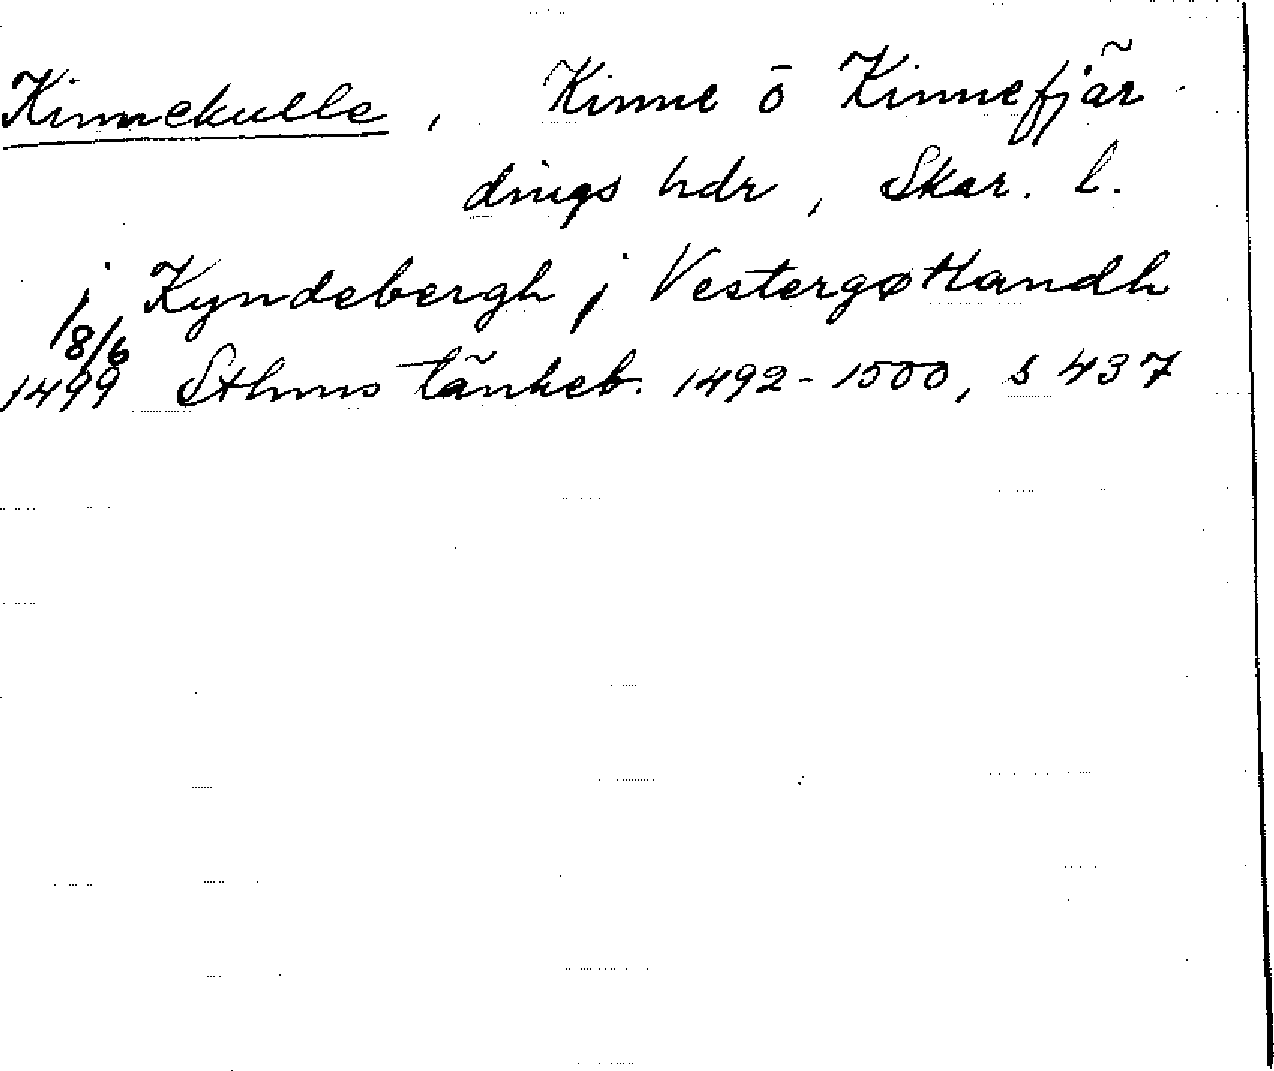 Kinnekulle, Kinne ö Kinnefjär
dings hdr, Skar. l.
j Kyndebergh j Vestergøtlandh
18/6
1499 Sthms tänkeb. 1492-1500, s 437